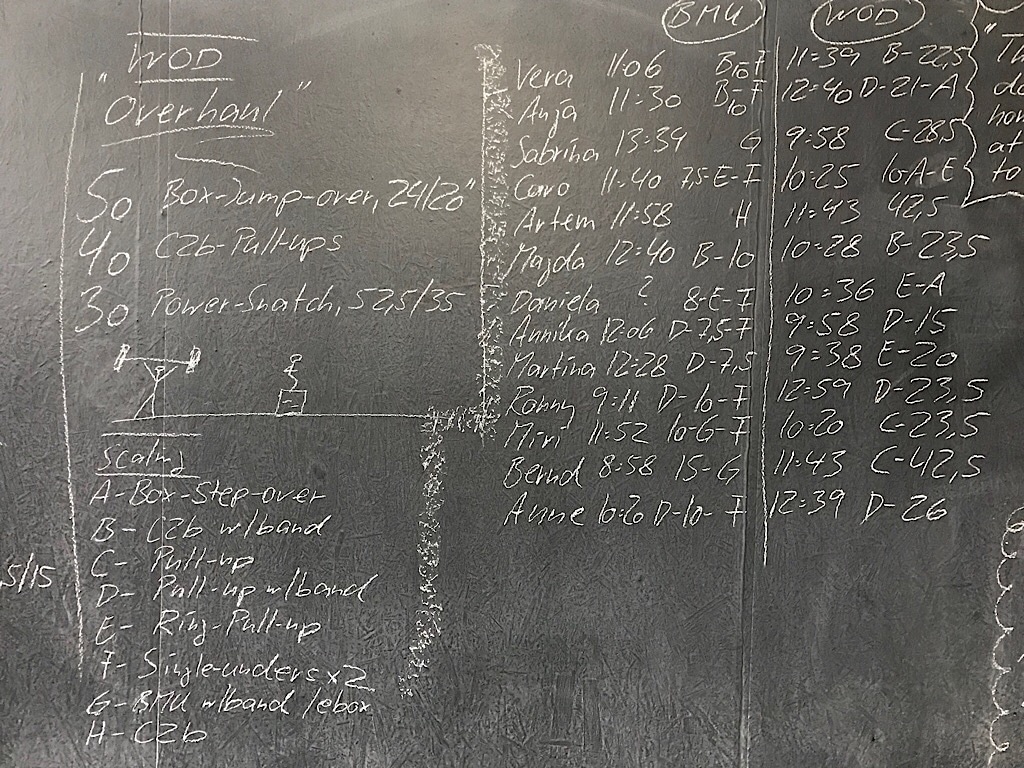 WOD
"Overhaul"
50 Box-Jump-over, 24/20"
40 C2b-Pull-ups
30 Power-Snatch, 52,5/35
Scaling
A-Box-Step-over
B- C2b w/band
C- Pull-up
D- Pull-up w/band
E- Ring-Pull-up
F- Single-unders x2
G- BMU w/band /ebox
H- C2b
,5/15
BMU WOD
Vera 11:06 B-10-F 11:39 B-22,5
Anja 11:30 B-10-F 12:40 D-21-A
Sabrina 13:34 G 9:58 C-28,5
Caro 11:40 7,5-E-F 10:25 16-A-E
Artem 11:58 H 11:43 42,5
Magda 12:40 B-10 10:28 B-23,5
Daniela ? 8-E-F 10:36 E-A
Annika 12:06 D-7,5-F 9:58 D-15
Martina 12:28 D-7,5 9:38 E-20
Ronny 9:11 D-10-F 12:59 D-23,5
Miri 11:52 10-G-F 10:20 C-23,5
Bernd 8:58 15-G 11:43 C-42,5
Anne 10:20 D-10-F 12:39 D-26